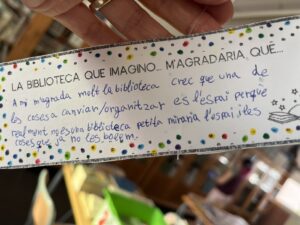 LA BIBLIOTECA QUE IMAGINO... M'AGRADARIA QUE...
A mi m'agrada molt la biblioteca crec que una de
les coses a canviar/organitzar es l'espai perquè
realment no es una biblioteca petita miraria l'espai i les
coses que ja no los